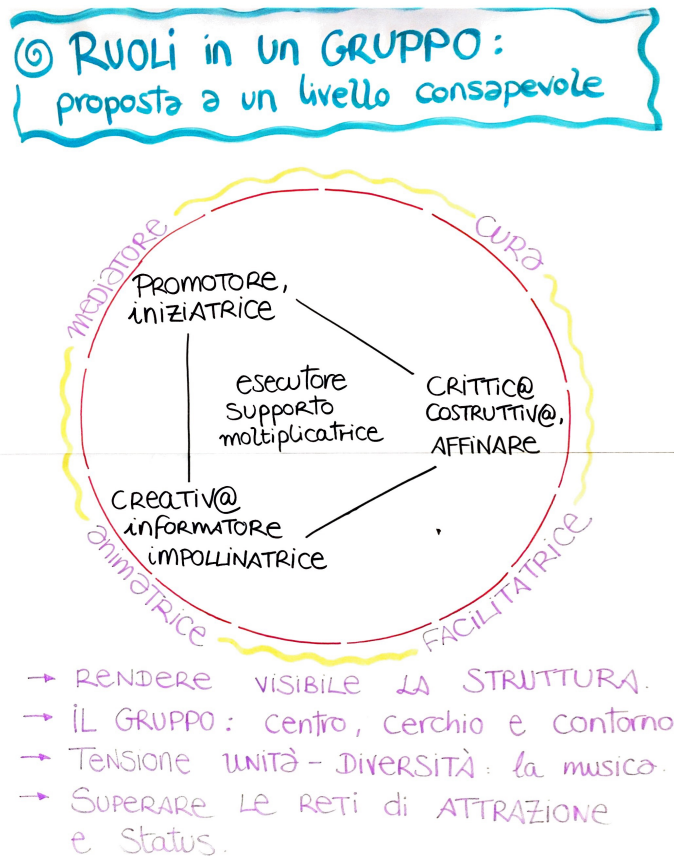 RUOLI in un GRUPPO:
proposta a un livello consapevole
MEDIATORE
CURA
PROMOTORE,
INIZIATRICE
esecutore
SUPPORTO
moltiplicatrice
CRITTIC@
COSTRUTTIV@,
AFFINARE
CREATIV@
INFORMATORE
IMPOLLINATRICE
animatrice
FACILITATRICE
→ RENDERE VISIBILE LA STRUTTURA.
→ IL GRUPPO: centro, cerchio e contorno
→ TENSIONE UNITÀ - DIVERSITÀ: la musica.
→ SUPERARE LE RETI di ATTRAZIONE
e Status.